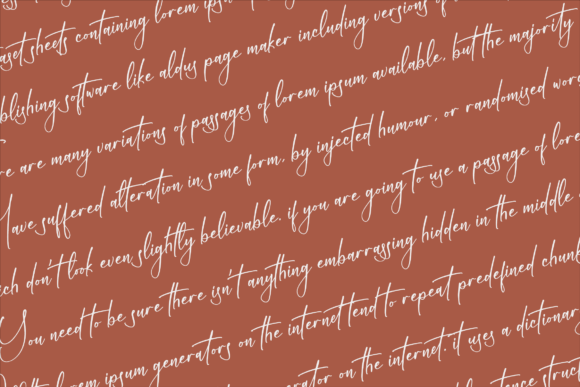 aset sheets containing lorem ipsum
blishing software like aldus page maker including versions of
re are many variations of passages of lorem ipsum available, but the majority
Have suffered alteration in some form, by injected humour, or randomised wor
ich don't look even slightly believable. if you are going to use a passage of lore
You need to be sure there isn't anything embarrassing hidden in the middle
lorem ipsum generators on the internet tend to repeat predefined chunk
rator on the internet. it uses a dictionar
tence struc